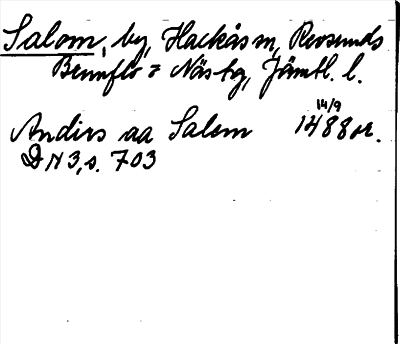 Salom, by, Hackås sn, Revsunds
Brunflo o Näs tg, Jämtl. l.
14/9
Anders aa Salem 1488 or.
DN 3, s. 703